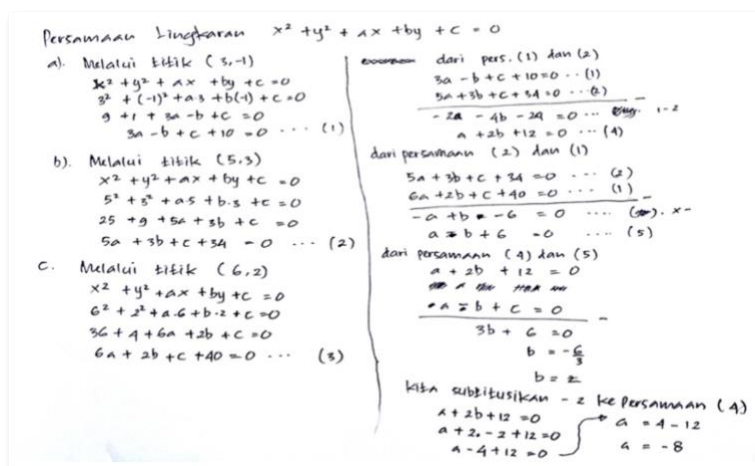 Persamaan Lingkaran x² + y² + ax + by + c = 0
a). Melalui titik (3,-1)
x² + y² + ax + by + c = 0
3² + (-1)² + a3 + b(-1) + c = 0
9 + 1 + 3a - b + c = 0
3a - b + c + 10 = 0 ... (1)
b). Melalui titik (5,3)
x² + y² + ax + by + c = 0
5² + 3² + a5 + b.3 + c = 0
25 + 9 + 5a + 3b + c = 0
5a + 3b + c + 34 = 0 ... (2)
c. Melalui titik (6,2)
x² + y² + ax + by + c = 0
6² + 2² + a.6 + b.2 + c = 0
36 + 4 + 6a + 2b + c = 0
6a + 2b + c + 40 = 0 ... (3)
dari pers. (1) dan (2)
3a - b + c + 10 = 0 .. (1)
5a + 3b + c + 34 = 0 ... (2)
-2a - 4b - 24 = 0 ... 1-2
a + 2b + 12 = 0 ... (4)
dari persamaan (2) dan (1)
5a + 3b + c + 34 = 0 ... (2)
6a + 2b + c + 40 = 0 ... (1)
-a + b - 6 = 0 ....
a - b + 6 = 0 .... (5)
dari persamaan (4) dan (5)
a + 2b + 12 = 0
a - b + 6 = 0
3b + 6 = 0
b = -6/3
b = 2
kita subtitusikan - 2 ke persamaan (4)
a + 2b + 12 = 0
a + 2. - 2 + 12 = 0
a - 4 + 12 = 0
a = 4 - 12
a = -8